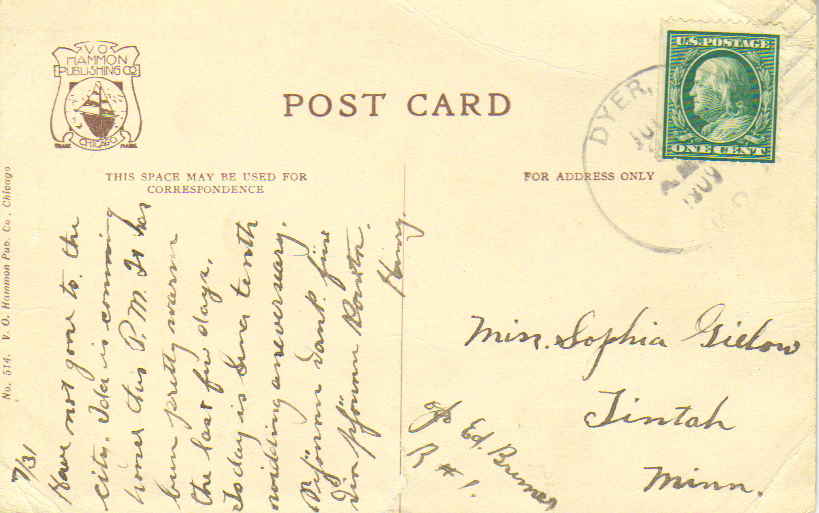 V.O.
HAMMON
PUBLISHING CO
CHICAGO
TRADE MARK
POST CARD
THIS SPACE MAY BE USED FOR
CORRESPONDENCE
FOR ADDRESS ONLY
U.S. POSTAGE
ONE CENT
DYER,
A.M
1909
No. 514. V. O. Hammon Pub. Co., Chicago
7/31
Have not gone to the
city. Ida is comming
home this P.M. It has
been pretty warm
the last few days.
Today is tenth
wedding aneversary.
Schönen Dank für
die schönen Karten.
Henry.
Miss. Sophia Gielow
Tintah
Minn.
c/o Ed. Bremer
R #1.